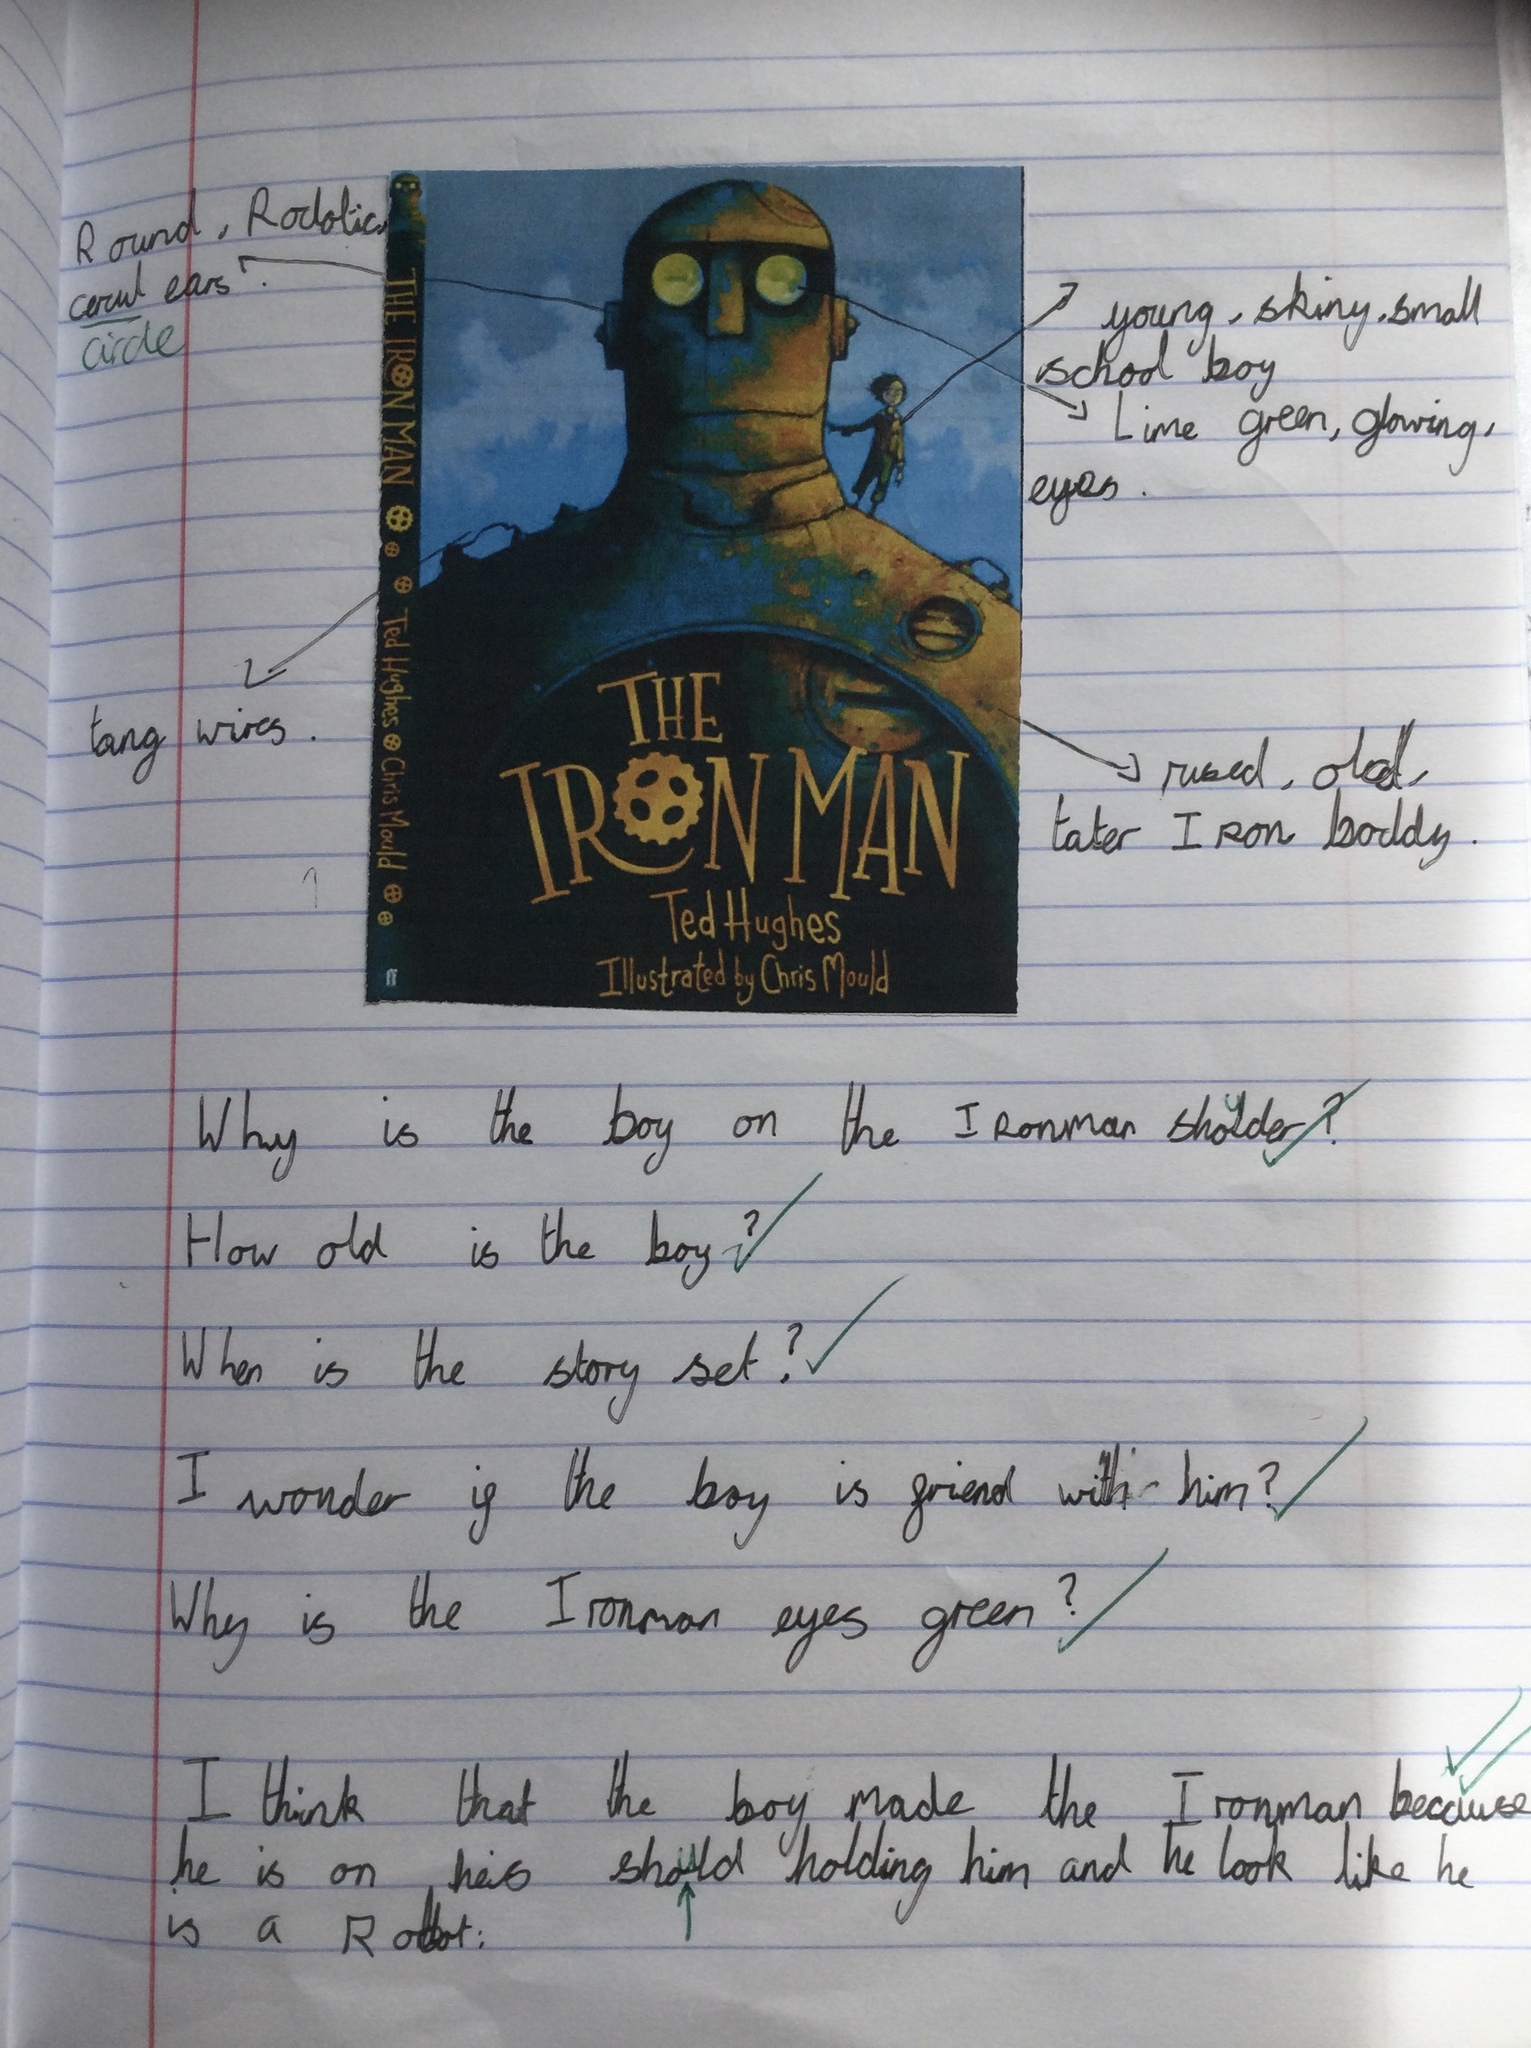 Round, Rodotic,
cercul ears.
circle
young, skiny, small
school boy
Lime green, glowing,
eyes.
tang wires.
rused, old,
tater Iron boddy.
THE IRON MAN Ted Hughes Chris Mould
ff
THE
IRON MAN
Ted Hughes
Illustrated by Chris Mould
Why is the boy on the Ironman shoulder?
How old is the boy?
When is the story set?
I wonder if the boy is friend with him?
Why is the Ironman eyes green?
I think that the boy made the Ironman because
he is on his should holding him and he look like he
is a Robot.